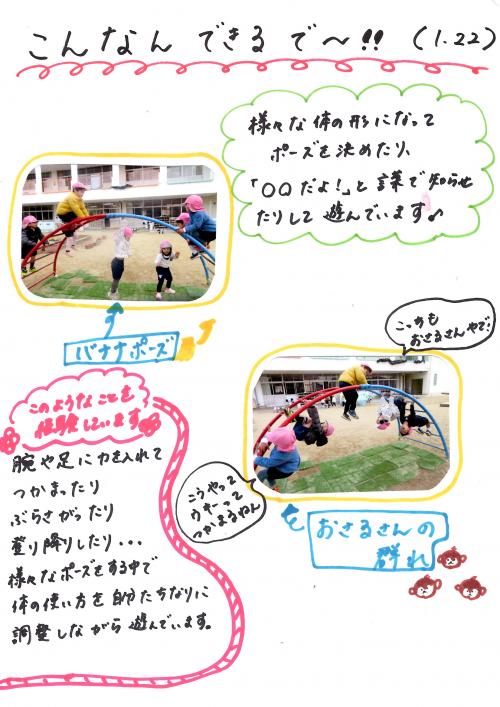 こんなん できる で～!! (1.22)
様々な体の形になって
ポーズを決めたり、
「〇〇だよ!」と言葉で知らせ
たりして遊んでいます♪
バナナポーズ
こっちも
おさるさんやで!
このようなことを
経験しています
腕や足に力を入れて
つかまったり
ぶらさがったり
登り降りしたり・・・
様々なポーズをする中で
体の使い方を自分たちなりに
調整しながら遊んでいます。
こうやって
ウキーって
つかまるねん
おさるさんの
群れ